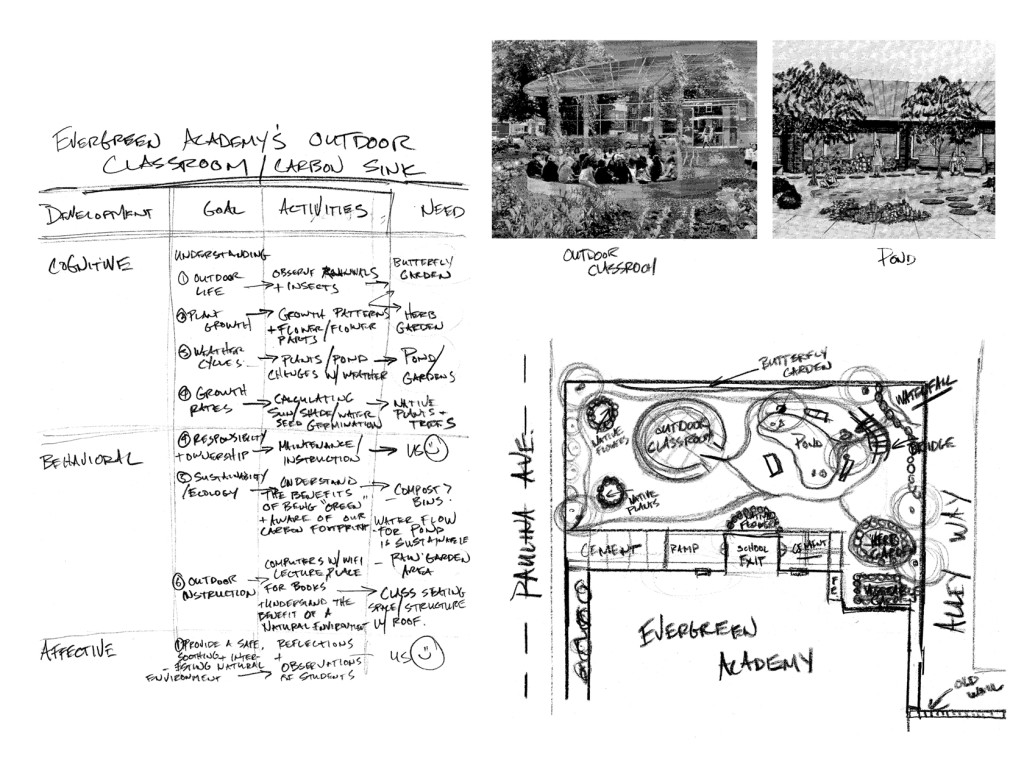 EVERGREEN ACADEMY'S OUTDOOR
CLASSROOM/CARBON SINK
DEVELOPMENT GOAL ACTIVITIES NEED
COGNITIVE
UNDERSTANDING
① OUTDOOR
LIFE
OBSERVE ANIMALS
+ INSECTS
BUTTERFLY
GARDEN
PLANT
GROWTH
GROWTH PATTERNS
+ FLOWER/FLOWER
PARTS
HERB
GARDEN
③ WEATHER
CYCLES
PLANTS/POND
CHANGES W/ WEATHER
POND/
GARDENS
④ GROWTH
RATES
CALCULATING
SUN/SHADE/WATER
SEED GERMINATION
NATIVE
PLANTS +
TREES
BEHAVIORAL
④ RESPONSIBILITY
+ OWNERSHIP
MAINTENANCE/
INSTRUCTION
US
⑤ SUSTAINABILITY
/ECOLOGY
UNDERSTAND
THE BENEFITS
OF BEING "GREEN"
+ AWARE OF OUR
CARBON FOOTPRINT
COMPOST
BINS
WATER FLOW
FOR POND
IS SUSTAINABLE
- RAIN GARDEN
AREA
⑥ OUTDOOR
INSTRUCTION
COMPUTERS W/ WIFI
LECTURE, PLACE
FOR BOOKS
+ UNDERSTAND THE
BENEFIT OF A
NATURAL ENVIRONMENT
CLASS SEATING
SPACE/STRUCTURE
W/ ROOF.
AFFECTIVE
① PROVIDE A SAFE,
SOOTHING + INTER-
ESTING NATURAL
ENVIRONMENT
REFLECTIONS
+
OBSERVATIONS
OF STUDENTS
US
OUTDOOR
CLASSROOM
POND
BUTTERFLY
GARDEN
WATERFALL
NATIVE
FLOWERS
OUTDOOR
CLASSROOM
POND
BRIDGE
NATIVE
PLANTS
FLOWERS
CEMENT
RAMP
SCHOOL
EXIT
CEMENT
HERB
GARDEN
VEGETABLE
PAULINA AVE.
ALLEY WAY
EVERGREEN
ACADEMY
OLD
WALL